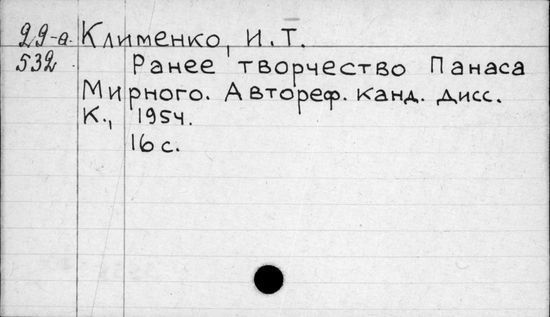 29-а Клименко, И.Т.
532 Ранее творчество Панаса
Мирного. Автореф. канд. дисс.
К., 1954.
16 с.